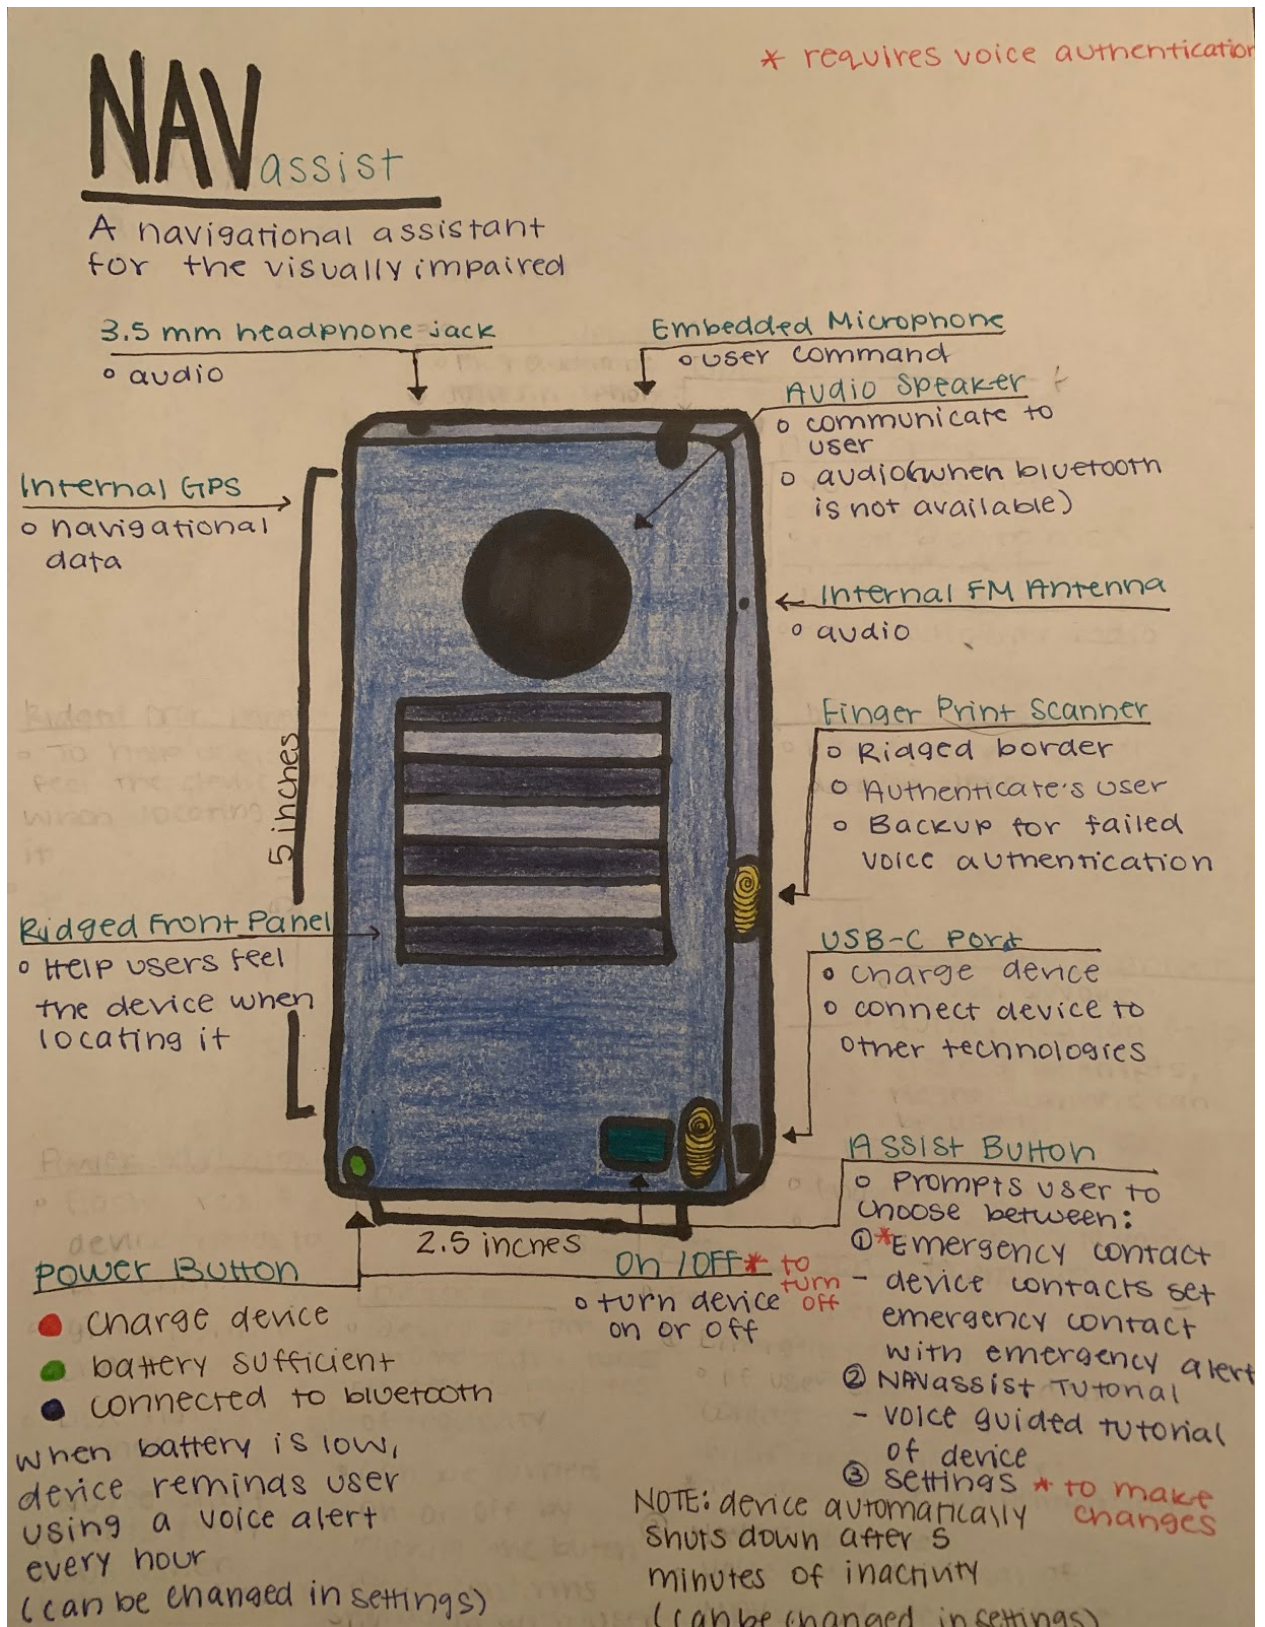 * requires voice authentication
NAV assist
A navigational assistant
for the visually impaired
3.5 mm headphone jack
o audio
Embedded Microphone
o user command
Audio Speaker
o communicate to
user
o audio (when bluetooth
is not available)
Internal GPS
o navigational
data
Internal FM Antenna
o audio
Finger Print Scanner
o Ridged border
o Authenticate's user
o Backup for failed
voice authentication
5 inches
Ridged Front Panel
o Help users feel
the device when
locating it
USB-C Port
o charge device
o connect device to
other technologies
Assist Button
o Prompts user to
choose between:
① *Emergency contact
- device contacts set
emergency contact
with emergency alert
② NAVassist Tutorial
- voice guided tutorial
of device
③ settings * to make
changes
2.5 inches
On / Off * to
turn
off
o turn device
on or off
Power Button
charge device
battery sufficient
connected to bluetooth
when battery is low,
device reminds user
using a voice alert
every hour
(can be changed in settings)
NOTE: device automatically
shuts down after 5
minutes of inactivity
(can be changed in settings)